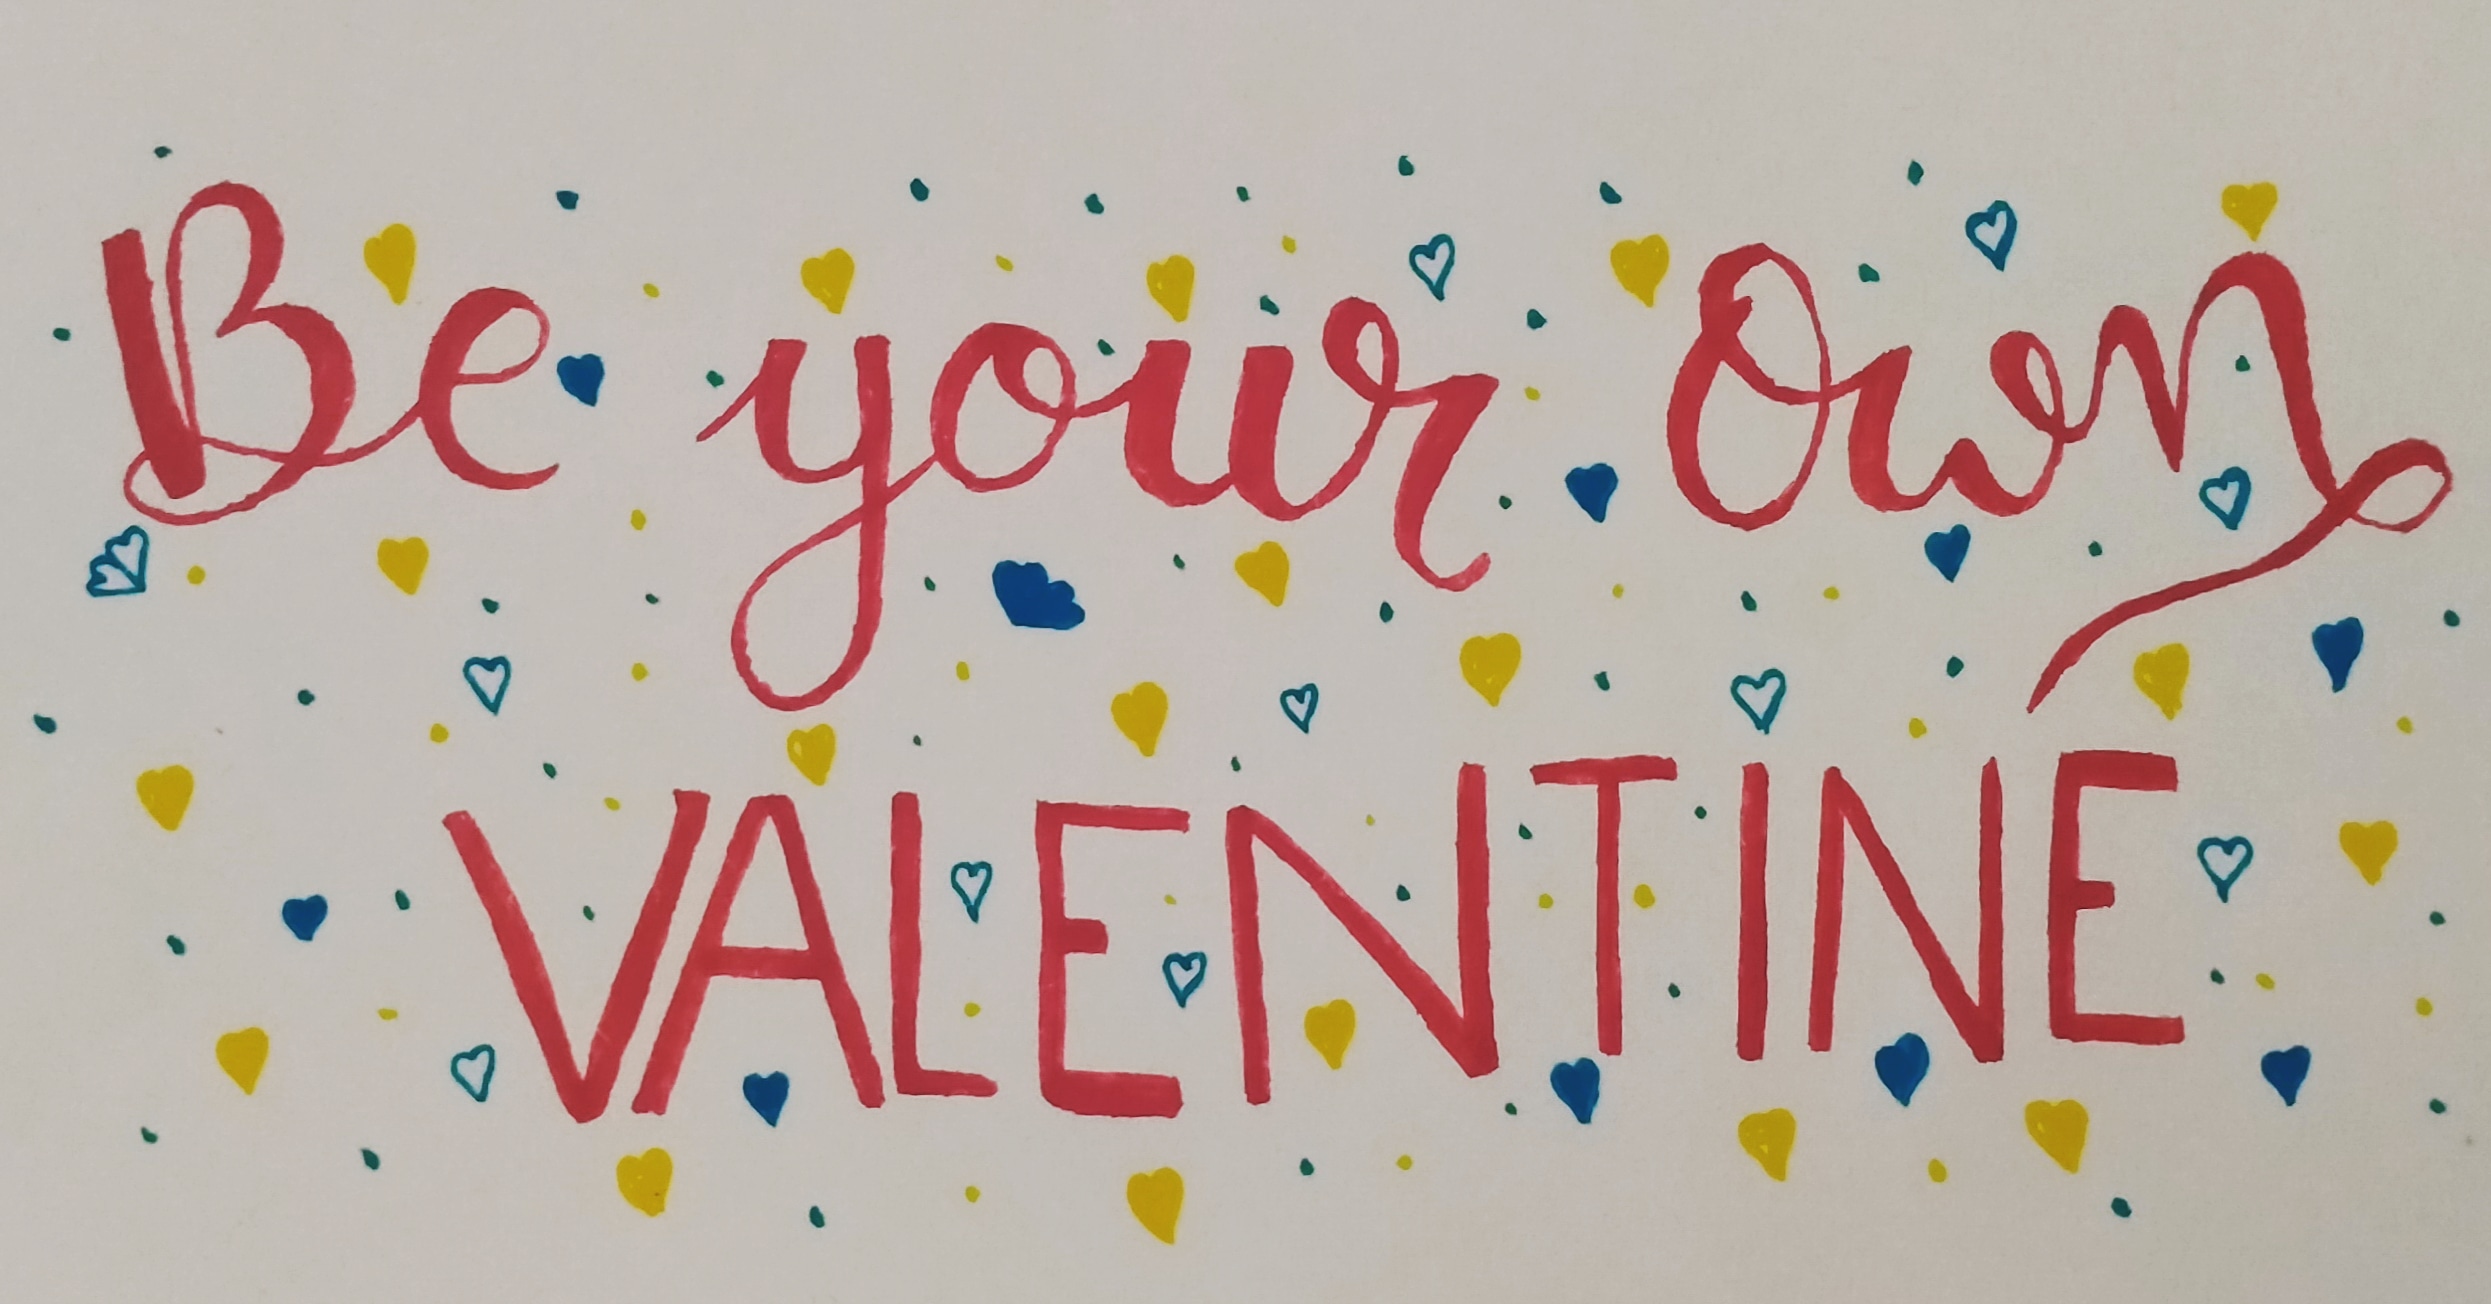 Be your own
VALENTINE